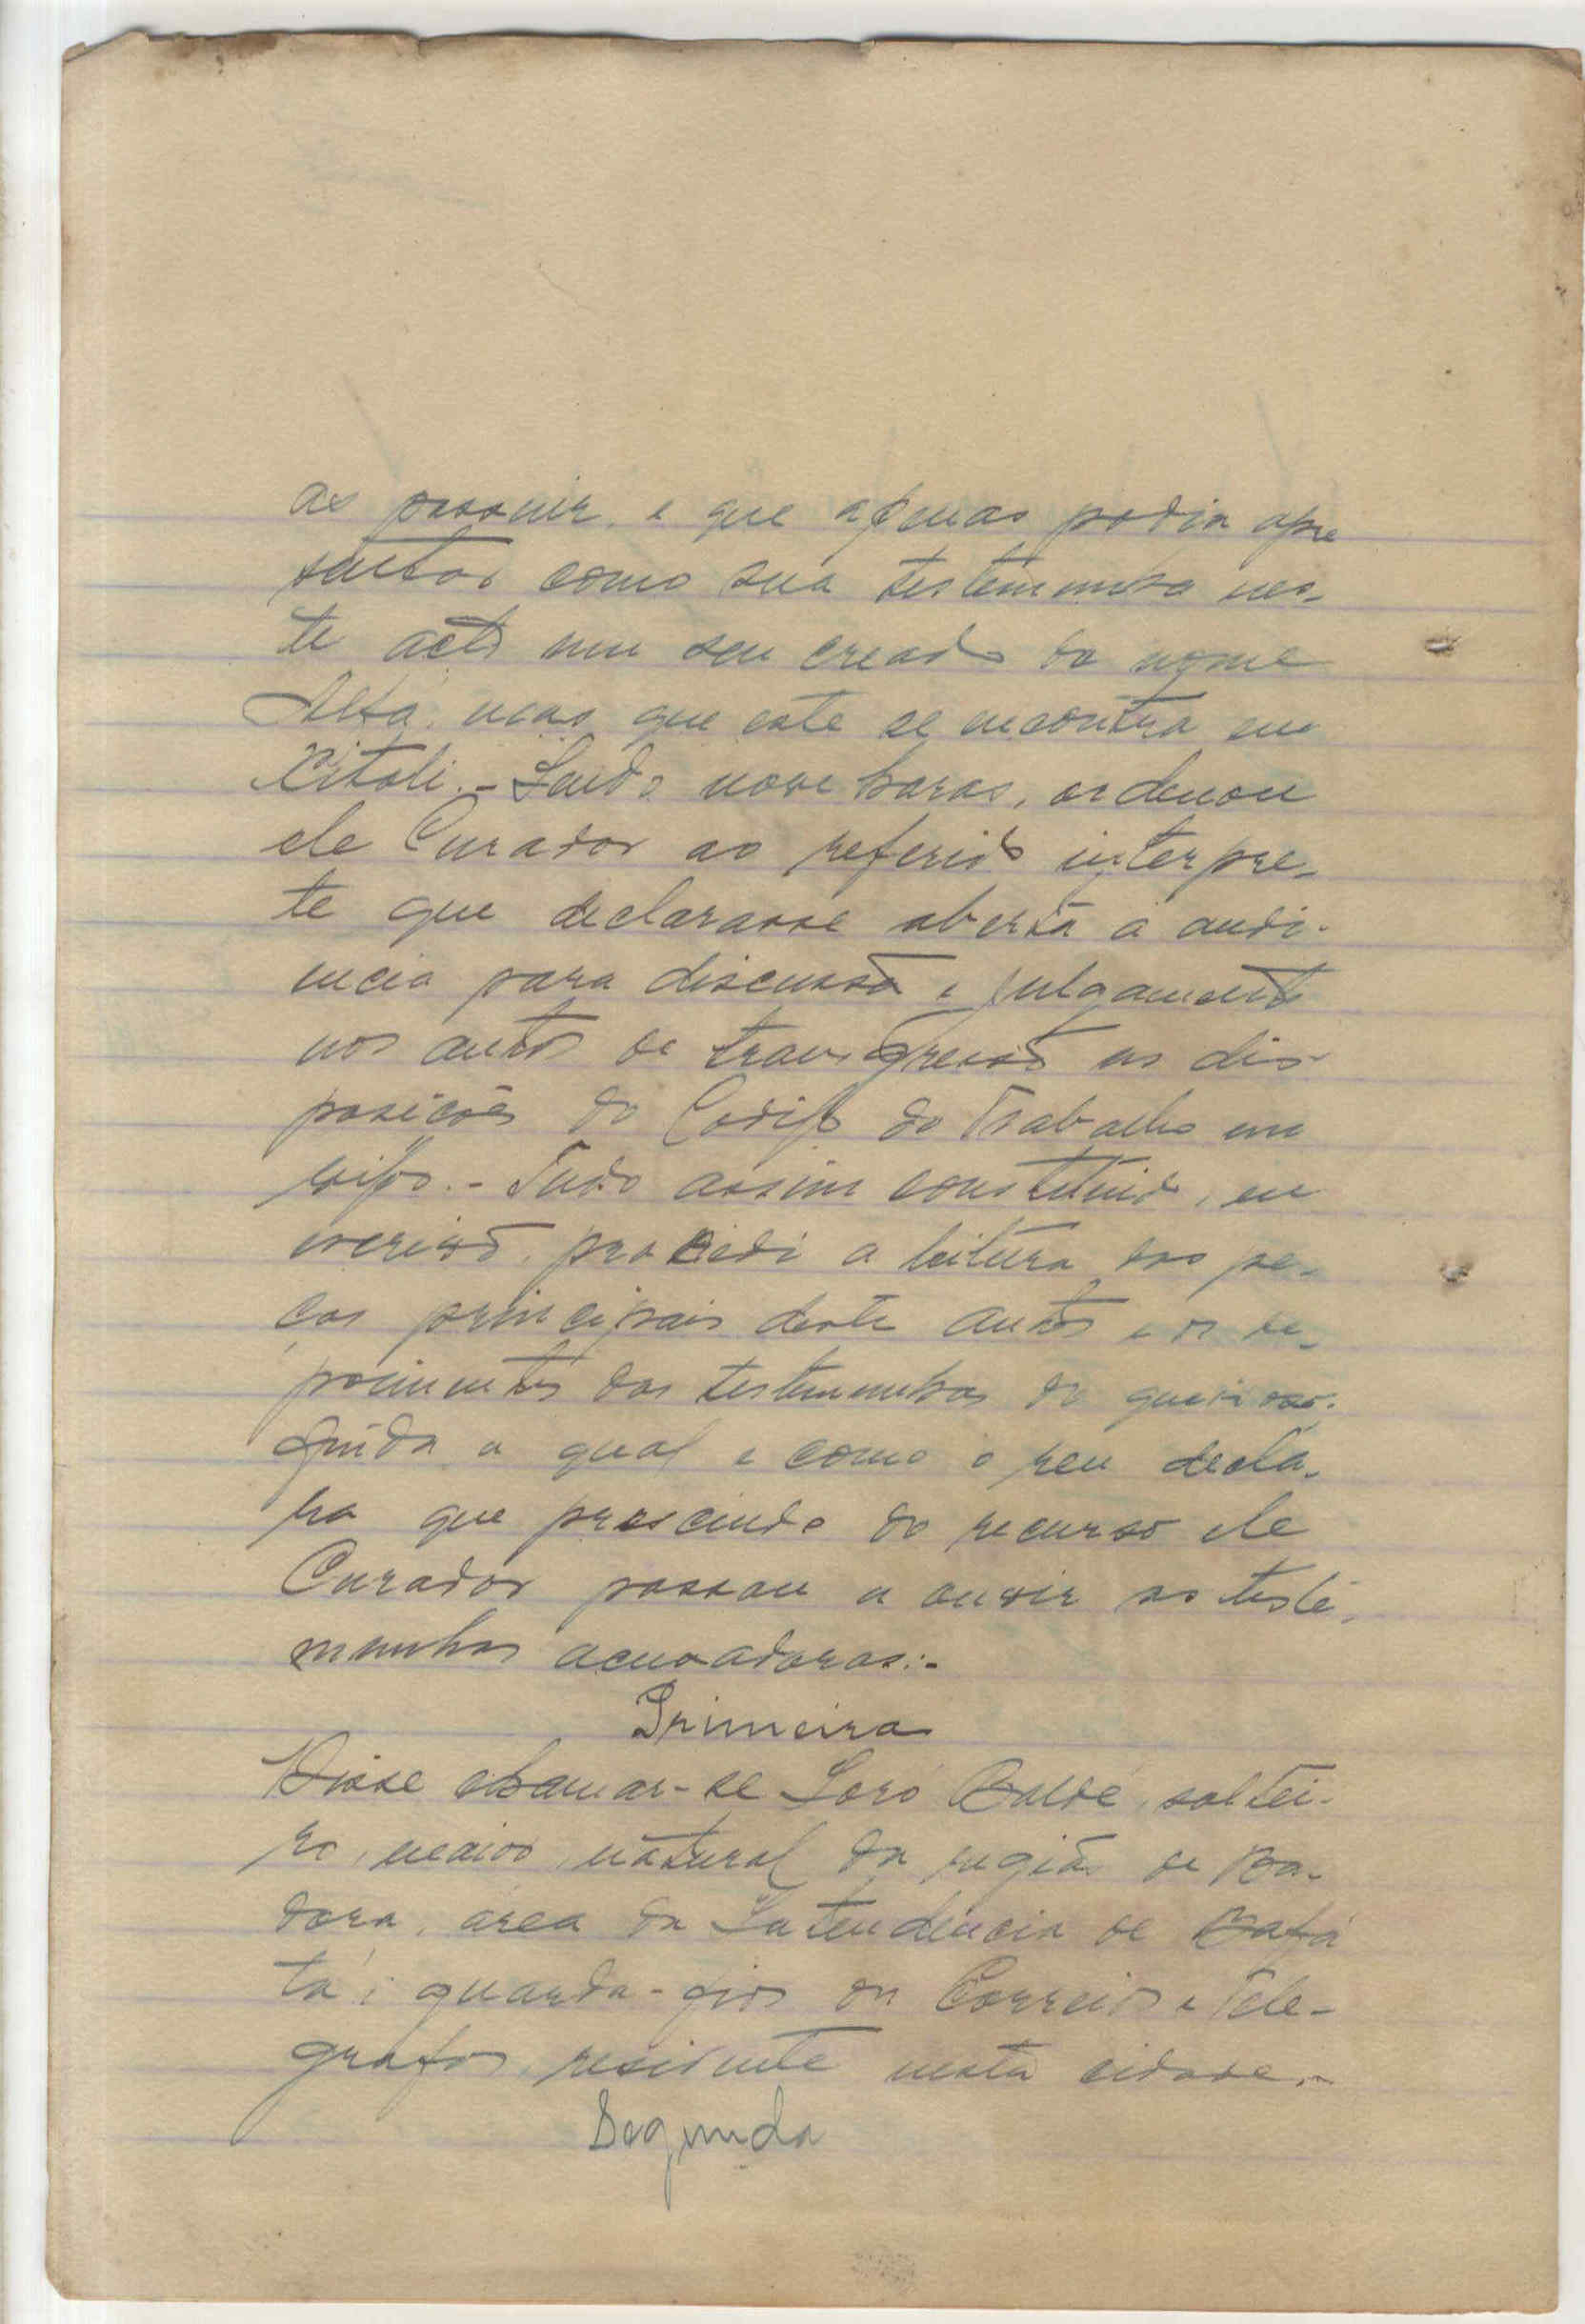 as possuir, e que apenas podia apre
sentar como sua testemunha nes-
te acto um seu creado de nome
mas que este se encontra em
Xitoli.- Sendo nove horas, ordenou
ele Curador ao referido interpre-
te que declarasse aberta a audi-
encia para discussão e julgamento
nos autos de transgressão as dis-
posições do Codigo do Trabalho em
vigor.- Tudo assim constituido, eu
escrivão, procedi a leitura das pe-
ças principais deste autos e os de-
poimentos das testemunhas
a qual e como o reu decla-
ra que prescinde do recurso ele
Curador passou a ouvir as teste-
munhas acusadoras:-
Primeira
Disse chamar-se Loró Baldé, soltei-
ro, maior, natural da região de Ba-
dora, área da Intendencia de Bafa
tá, guarda-fios dos Correios e Tele-
grafos, residente nesta cidade.-
Segunda